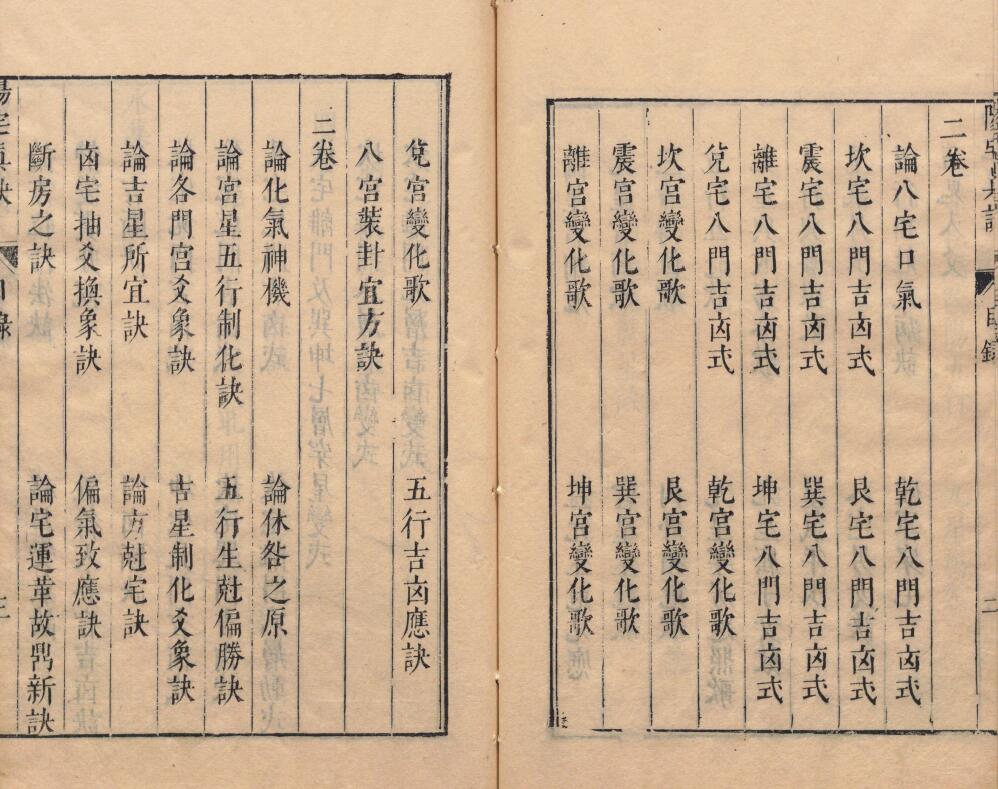 二卷
論八宅口氣
乾宅八門吉凶式
坎宅八門吉凶式
艮宅八門吉凶式
震宅八門吉凶式
巽宅八門吉凶式
離宅八門吉凶式
坤宅八門吉凶式
兌宅八門吉凶式
乾宮變化歌
坎宮變化歌
艮宮變化歌
震宮變化歌
巽宮變化歌
離宮變化歌
坤宮變化歌
兌宮變化歌
五行吉凶應訣
八宮裝封宜方訣
三卷
論化氣神機
論休咎之原
論宮星五行制化訣
五行生尅偏勝訣
論各門宮爻象訣
吉星制化爻象訣
論吉星所宜訣
論方尅宅訣
凶宅抽爻換象訣
偏氣致應訣
斷房之訣
論宅運革故鼎新訣
目錄
三